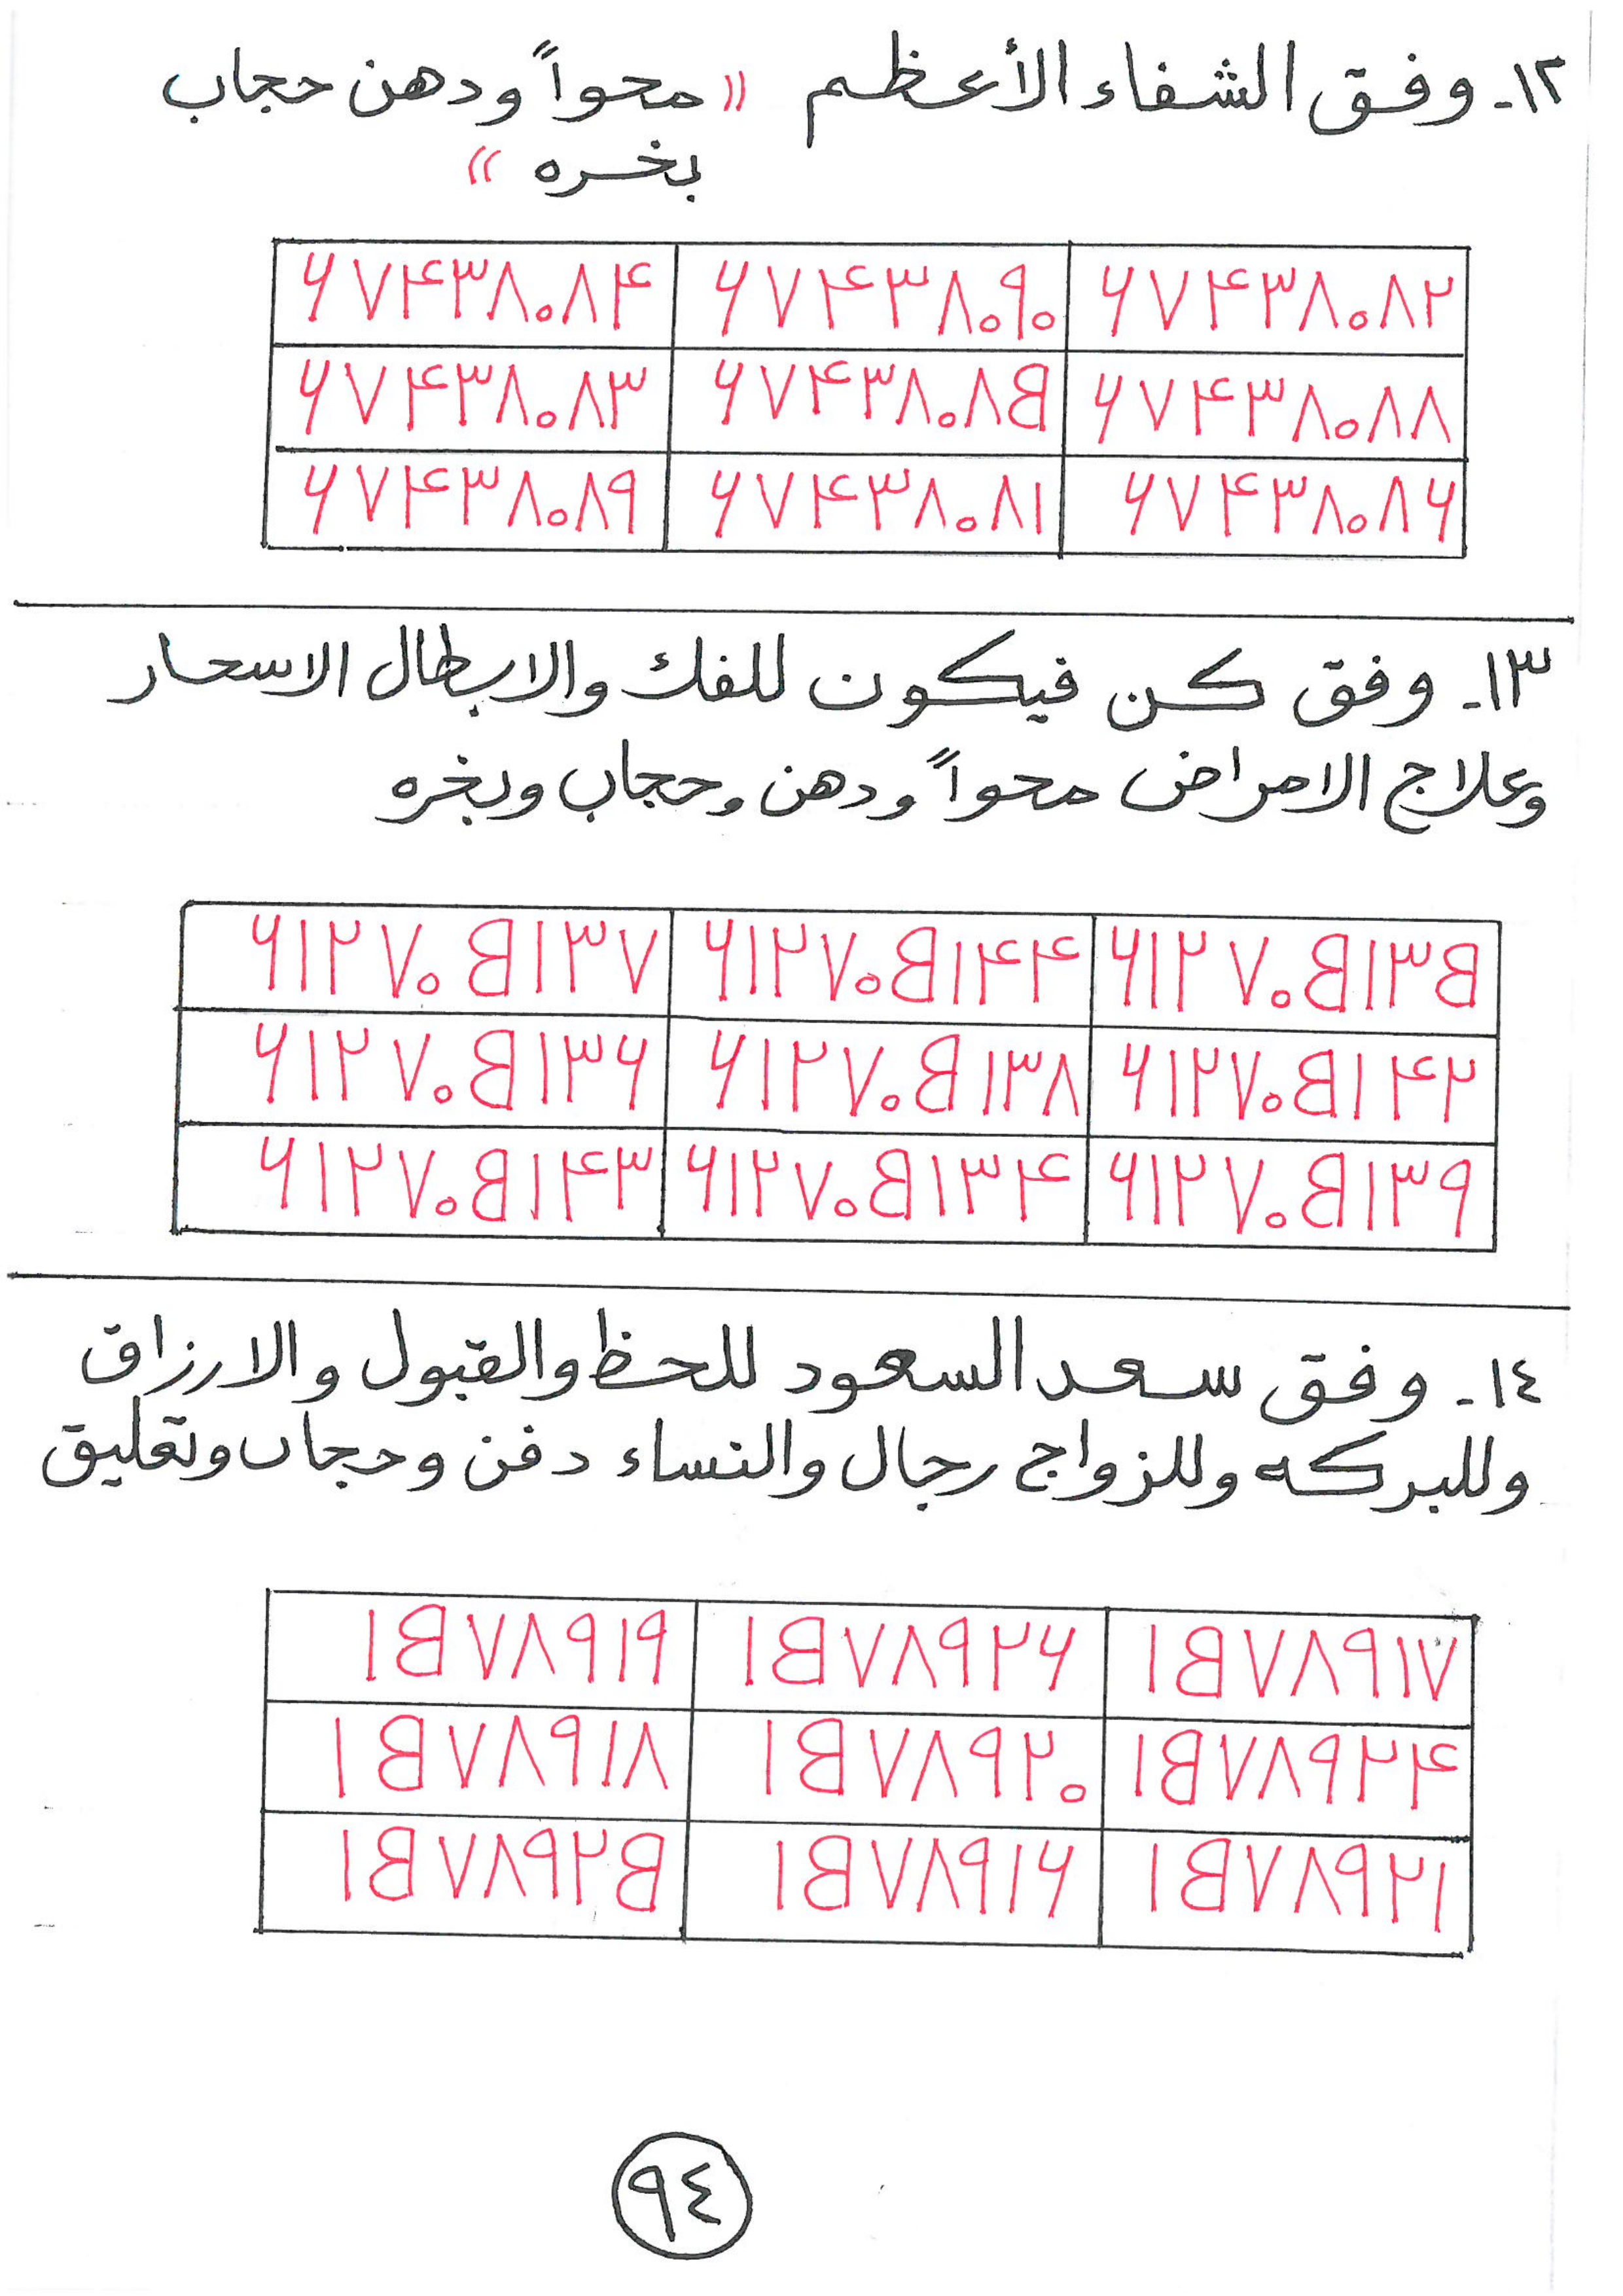 ١٢- وفق الشفاء الأعظم "محواً ودهن حجاب
بخره"
٦٧٤٣٨٠٨٤ ٦٧٤٣٨٠٩٠ ٦٧٤٣٨٠٨٢
٦٧٤٣٨٠٨٣ ٦٧٤٣٨٠٨٥ ٦٧٤٣٨٠٨٨
٦٧٤٣٨٠٨٩ ٦٧٤٣٨٠٨١ ٦٧٤٣٨٠٨٦
١٣- وفق كن فيكون للفك والابطال الاسحار
وعلاج الامراض محواً ودهن وحجاب وبخره
٦١٢٧٠٥١٣٧ ٦١٢٧٠٥١٤٤ ٦١٢٧٠٥١٣٥
٦١٢٧٠٥١٣٦ ٦١٢٧٠٥١٣٨ ٦١٢٧٠٥١٤٢
٦١٢٧٠٥١٤٣ ٦١٢٧٠٥١٣٤ ٦١٢٧٠٥١٣٩
١٤- وفق سعد السعود للحظ والقبول والارزاق
وللبركه وللزواج رجال والنساء دفن وحجاب وتعليق
١٥٧٨٩١٩ ١٥٧٨٩٢٦ ١٥٧٨٩١٧
١٥٧٨٩١٨ ١٥٧٨٩٢٠ ١٥٧٨٩٢٤
١٥٧٨٩٢٥ ١٥٧٨٩١٦ ١٥٧٨٩٢١
٩٤